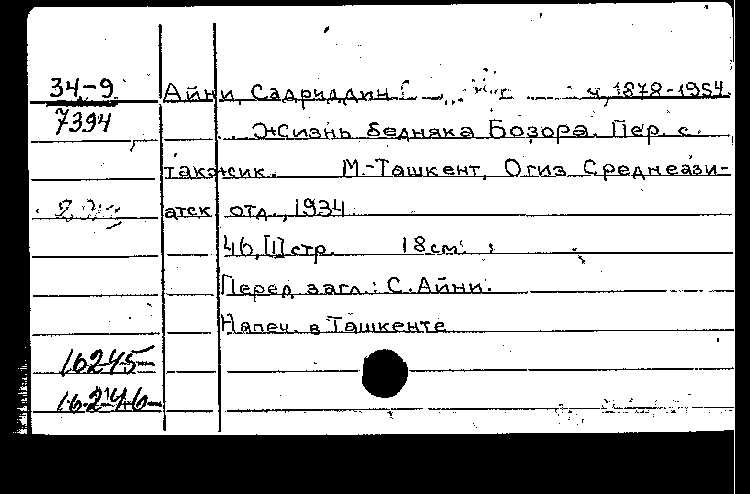 34-9
7394
Айни, Садриддин 1878-1954.
Жизнь бедняка Бозора. Пер. с.
таджик. М.-Ташкент, Огиз Среднеази-
атск отд., 1934
46, [1] стр. 18 см.
Перед загл.: С. Айни.
Напеч. в Ташкенте
16245-
16246-